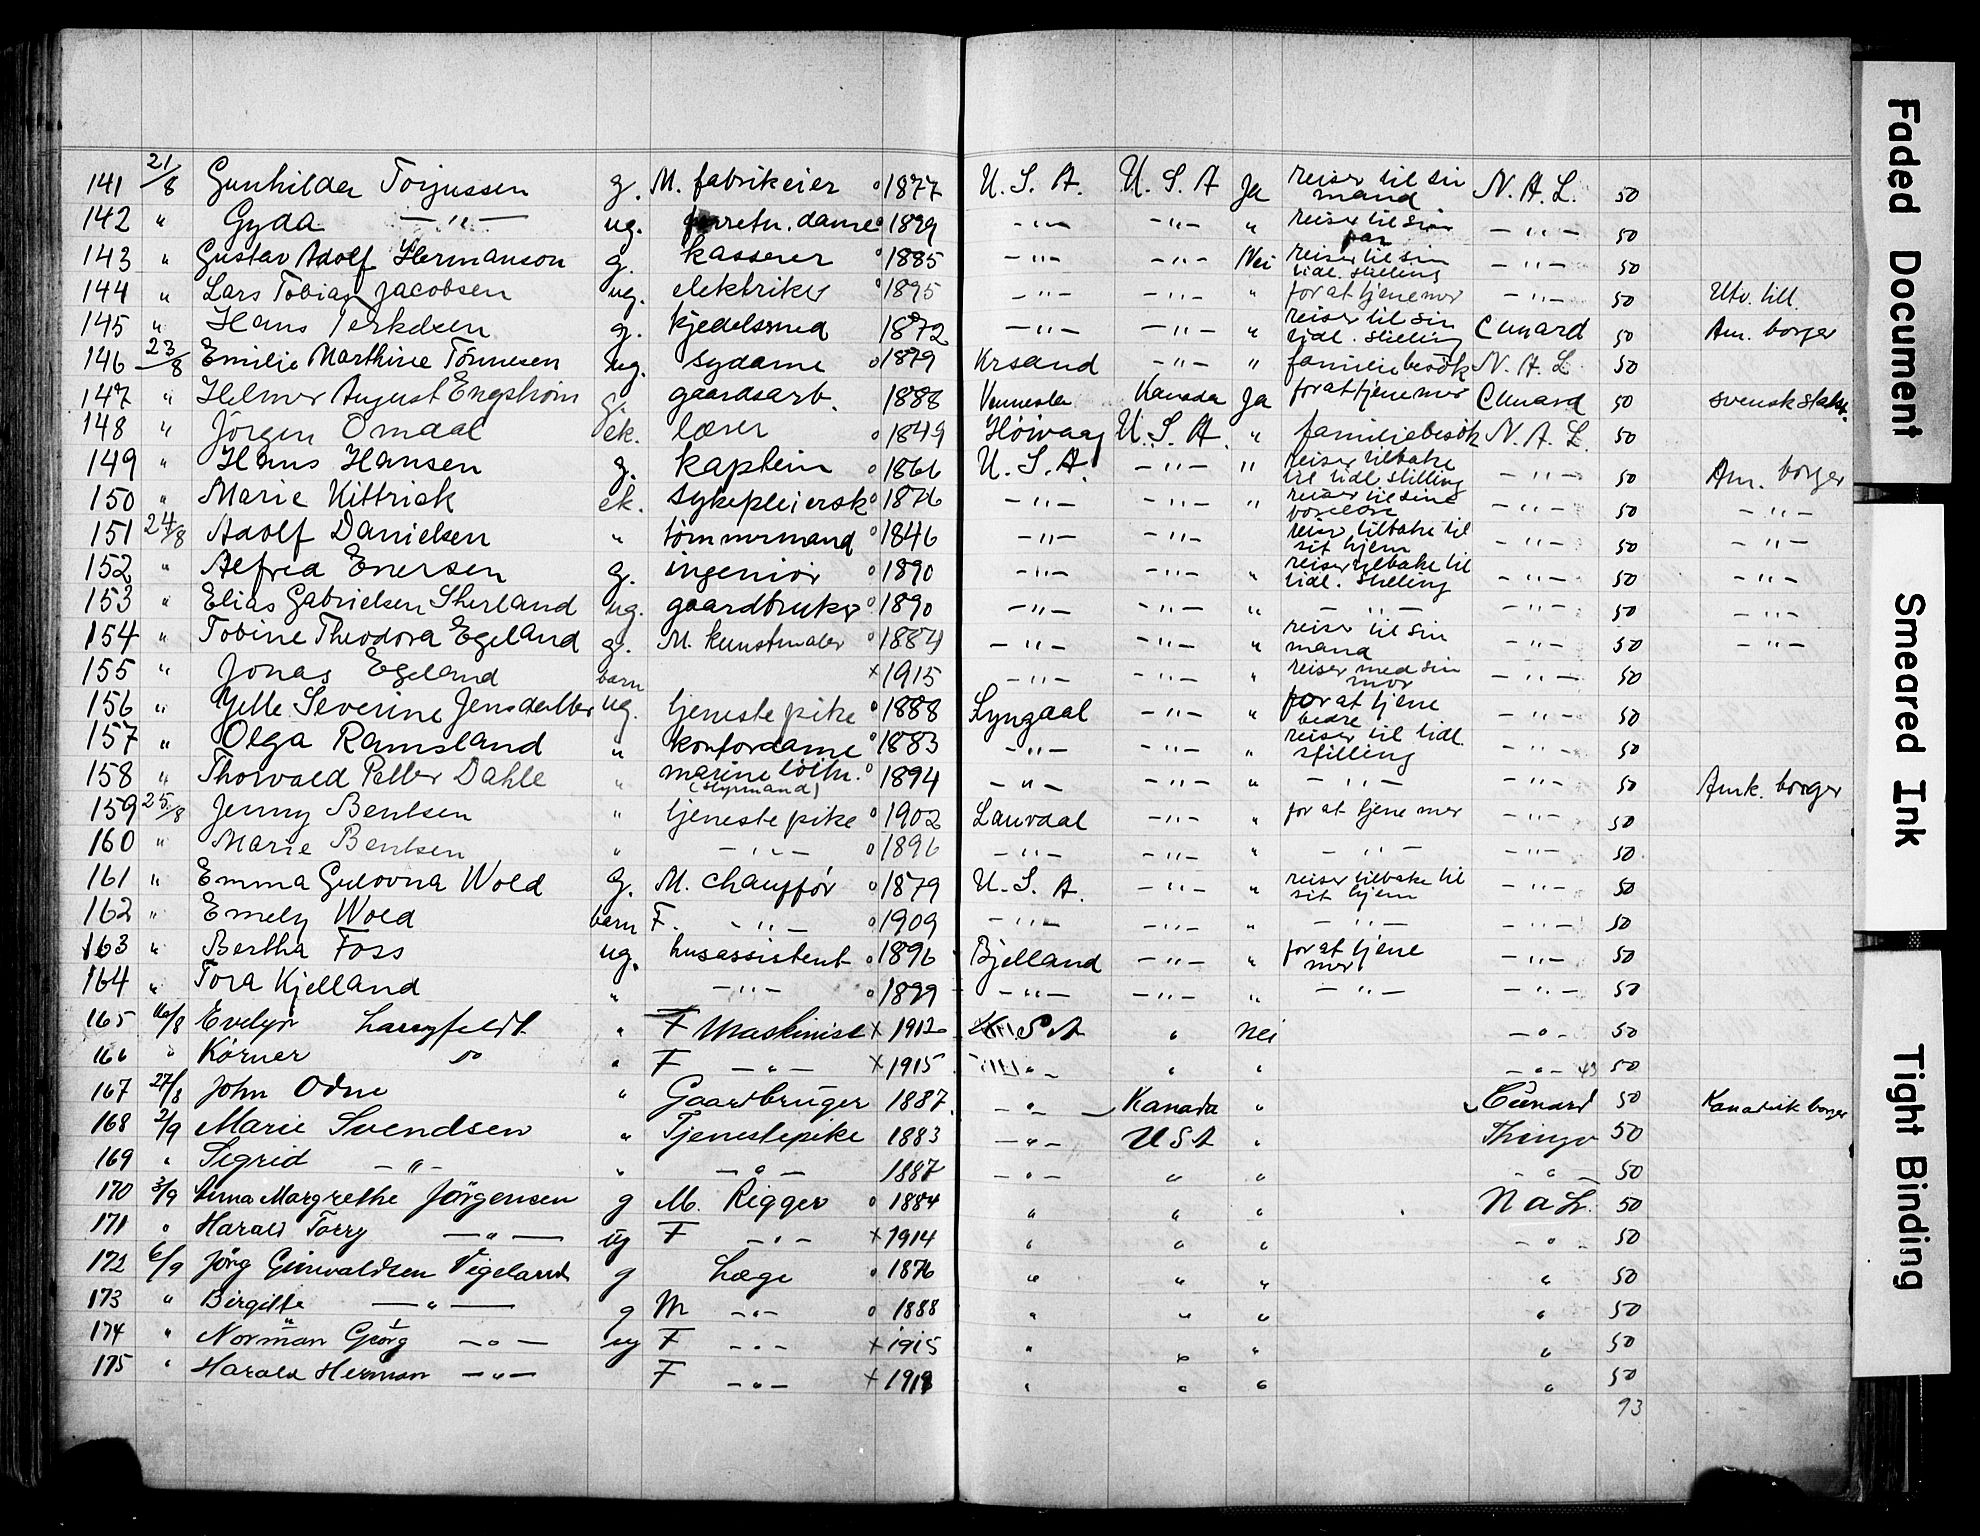 141 21/8 Gunhilda Torjussen g. M. fabrikeier o 1877 U. S. A. U. S. A Ja reiser til sin mand N. A. L. 50
142 " Gyda —"— ug. forretn. dame o 1899 —"— —"— " reiser til sin far —"— 50
143 " Gustav Adolf Hermanson g. kasserer o 1885 —"— —"— Nei reiser til sin tidl. stilling —"— 50
144 " Lars Tobias Jacobsen ug. elektriker o 1895 —"— —"— " for at tjene mer —"— 50 Utv. till.
145 " Hans Terkelsen g. kjedelsmed 1872 —"— —"— " reiser til sin tidl. stilling Cunard 50 Am. borger
146 23/8 Emilie Marthine Tönnesen ug. sydame o 1879 Krsand —"— " familiebesök N. A. L. 50
147 " Helmer August Engström g. gaardsarb. 1888 Vennesla Kanada Ja for at tjene mer Cunard 50 svensk statsb.
148 " Jörgen Omdal ek. lærer o 1849 Høivaag U. S. A. " familiebesök N. A. L. 50
149 " Hans Hansen g. kaptein o 1866 U. S. A. —"— " reiser tilbake til tidl. stilling —"— 50 Am. borger
150 " Marie Kittrick ek. sykepleiersk o 1876 —"— —"— " reiser til sine foreldre —"— 50 —"—
151 24/8 Adolf Danielsen " tömmermand o 1846 —"— —"— reiser tilbake til sit hjem —"— 50 —"—
152 " Alfred Enersen g. ingeniør o 1890 —"— —"— " reiser tilbake til tidl. stilling —"— 50 —"—
153 " Elias Gabrielsen Skerland ug. gaardbruker o 1890 —"— —"— " —"— —"— 50 —"—
154 " Tobine Theodora Egeland g. M. kunstmaler o 1884 —"— —"— " reiser til sin mand —"— 50 —"—
155 " Jonas Egeland barn x 1915 —"— —"— " reiser med sin mor —"— 50
156 " Jelle Severine Jensdatter ug. tjenestepike o 1888 Lyngdal —"— " for at tjene bedre —"— 50
157 " Olga Ramsland " kontordame o 1883 —"— —"— " reiser til tidl. stilling —"— 50
158 " Thorvald Petter Dahle " marine löitn. (styrmand) o 1894 —"— —"— " —"— —"— 50 Amk. borger
159 25/8 Jenny Bentsen " tjenestepike o 1902 Lauvdal —"— " for at tjene mer —"— 50
160 " Marie Bentsen " —"— o 1896 —"— —"— " —"— —"— 50
161 " Emma Gulovna Wold g. M. chauffør o 1879 U. S. A. —"— " reiser tilbake til sit hjem —"— 50
162 " Emely Wold barn F. —"— o 1909 —"— —"— " —"— —"— 50
163 " Bertha Foss ug. husassistent o 1896 Bjelland —"— " for at tjene mer —"— 50
164 " Tora Kjelland " —"— o 1899 —"— —"— " —"— —"— 50
165 26/8 Evelyn Langfeldt " F Maskinist x 1912 U S A " Nei —"— 50
166 " Körner do " F —"— x 1915 —"— " " —"— 50
167 27/8 John Odne " Gaardbruger 1887 —"— Kanada " Cunard 50 Kanadisk borger
168 2/9 Marie Svendsen " Tjenestepike 1883 —"— U S A " Thingv 50
169 " Sigrid —"— " —"— 1887 —"— " " —"— 50
170 3/9 Anna Margrethe Jörgensen g M. Rigger o 1884 " " " N A L. 50
171 " Harald Torry —"— ug F —"— x 1914 " " " —"— 50
172 6/9 Jörg Gunvaldsen Vigeland g Læge o 1876 " " " " 50
173 " Birgitte —"— g M —"— o 1888 " " " " 50
174 " Norman Georg —"— ug F —"— x 1915 " " " " 50
175 " Harald Herman —"— F —"— x 1918 " " " " 50
93
Faded Document
Smeared Ink
Tight Binding